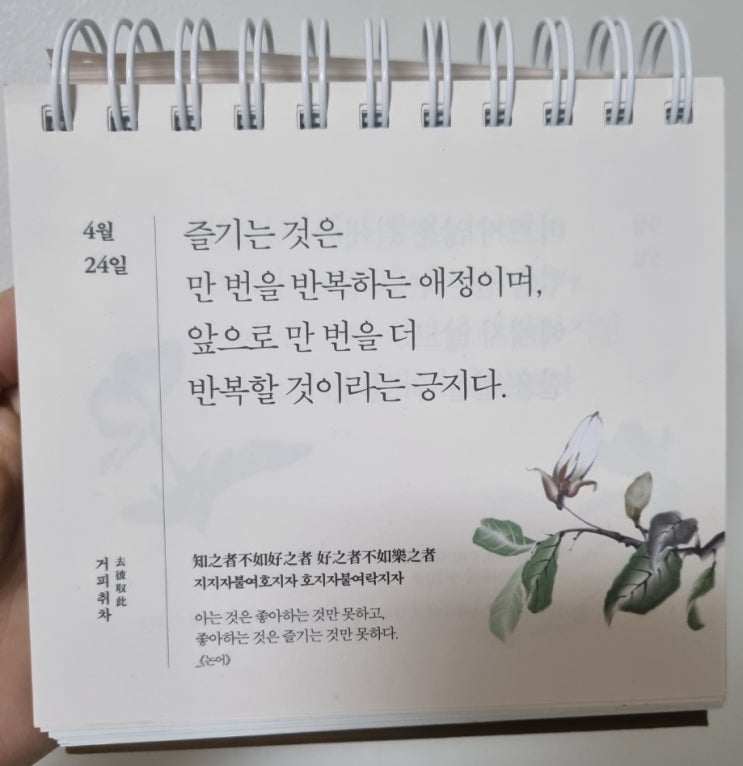 4월
24일
즐기는 것은
만 번을 반복하는 애정이며,
앞으로 만 번을 더
반복할 것이라는 긍지다.
去彼取此
거피취차
知之者不如好之者 好之者不如樂之者
지지자불여호지자 호지자불여락지자
아는 것은 좋아하는 것만 못하고,
좋아하는 것은 즐기는 것만 못하다.
《논어》